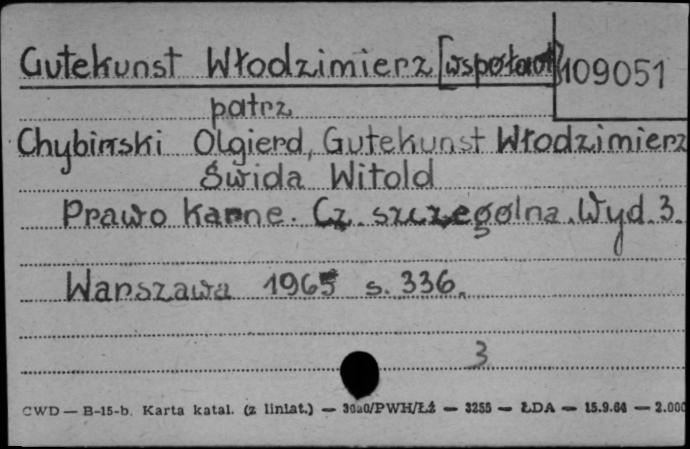 Gutekunst Włodzimierz [współaut] 109051
patrz
Chybiński Olgierd, Gutekunst Włodzimierz
Świda Witold
Prawo karne. Cz. szczególna. Wyd. 3.
Warszawa 1965 s. 336.
3
CWD — B-15-b. Karta katal. (z liniat.) — /PWH/Łź — 3255 — ŁDA — 15.9.64 — 2.000